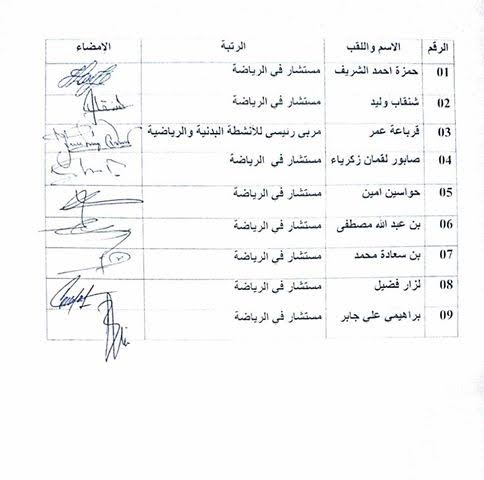 الرقم الاسم واللقب الرتبة الامضاء
01 حمزة احمد الشريف مستشار في الرياضة
02 شنقاب وليد مستشار في الرياضة
03 قرباعة عمر مربي رئيسي للأنشطة البدنية والرياضية
04 صابور لقمان زكرياء مستشار في الرياضة
05 حواسين امين مستشار في الرياضة
06 بن عبد الله مصطفى مستشار في الرياضة
07 بن سعادة محمد مستشار في الرياضة
08 لزار فضيل مستشار في الرياضة
09 براهيمي علي جابر مستشار في الرياضة